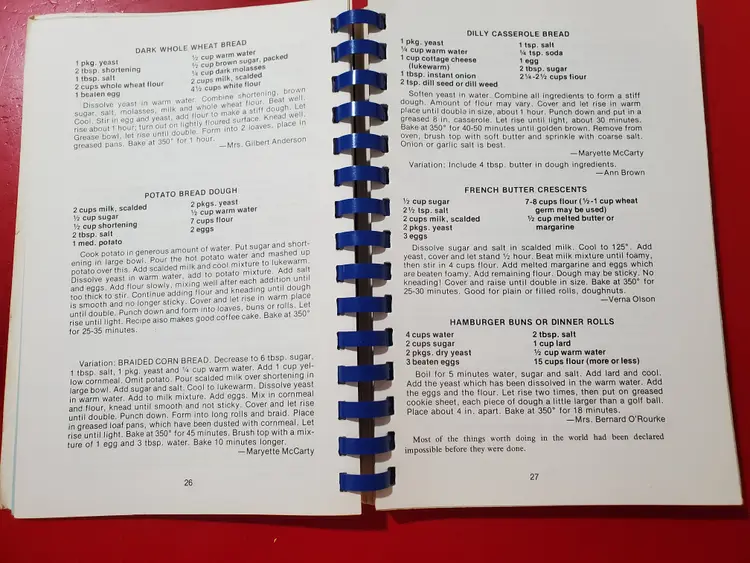 DARK WHOLE WHEAT BREAD
1 pkg. yeast
2 tbsp. shortening
1 tbsp. salt
2 cups whole wheat flour
1 beaten egg
½ cup warm water
½ cup brown sugar, packed
¼ cup dark molasses
2 cups milk, scalded
4½ cups white flour
Dissolve yeast in warm water. Combine shortening, brown
sugar, salt, molasses, milk and whole wheat flour. Beat well.
Cool. Stir in egg and yeast, add flour to make a stiff dough. Let
rise about 1 hour; turn out on lightly floured surface. Knead well.
Grease bowl, let rise until double. Form into 2 loaves, place in
greased pans. Bake at 350° for 1 hour.
—Mrs. Gilbert Anderson
POTATO BREAD DOUGH
2 cups milk, scalded
½ cup sugar
½ cup shortening
2 tbsp. salt
1 med. potato
2 pkgs. yeast
½ cup warm water
7 cups flour
2 eggs
Cook potato in generous amount of water. Put sugar and short-
ening in large bowl. Pour the hot potato water and mashed up
potato over this. Add scalded milk and cool mixture to lukewarm.
Dissolve yeast in warm water, add to potato mixture. Add salt
and eggs. Add flour slowly, mixing well after each addition until
too thick to stir. Continue adding flour and kneading until dough
is smooth and no longer sticky. Cover and let rise in warm place
until double. Punch down and form into loaves, buns or rolls. Let
rise until light. Recipe also makes good coffee cake. Bake at 350°
for 25-35 minutes.
Variation: BRAIDED CORN BREAD. Decrease to 6 tbsp. sugar,
1 tbsp. salt, 1 pkg. yeast and ¼ cup warm water. Add 1 cup yel-
low cornmeal. Omit potato. Pour scalded milk over shortening in
large bowl. Add sugar and salt. Cool to lukewarm. Dissolve yeast
in warm water. Add to milk mixture. Add eggs. Mix in cornmeal
and flour, knead until smooth and not sticky. Cover and let rise
until double. Punch down. Form into long rolls and braid. Place
in greased loaf pans, which have been dusted with cornmeal. Let
rise until light. Bake at 350° for 45 minutes. Brush top with a mix-
ture of 1 egg and 3 tbsp. water. Bake 10 minutes longer.
—Maryette McCarty
26
DILLY CASSEROLE BREAD
1 pkg. yeast
¼ cup warm water
1 cup cottage cheese
(lukewarm)
1 tbsp. instant onion
2 tsp. dill seed or dill weed
1 tsp. salt
¼ tsp. soda
1 egg
2 tbsp. sugar
2¼-2½ cups flour
Soften yeast in water. Combine all ingredients to form a stiff
dough. Amount of flour may vary. Cover and let rise in warm
place until double in size, about 1 hour. Punch down and put in a
greased 8 in. casserole. Let rise until light, about 30 minutes.
Bake at 350° for 40-50 minutes until golden brown. Remove from
oven, brush top with butter and sprinkle with coarse salt.
Onion or garlic salt is best.
—Maryette McCarty
Variation: Include 4 tbsp. butter in dough ingredients.
—Ann Brown
FRENCH BUTTER CRESCENTS
½ cup sugar
2½ tsp. salt
2 cups milk, scalded
2 pkgs. yeast
3 eggs
7-8 cups flour (½-1 cup wheat
germ may be used)
½ cup melted butter or
margarine
Dissolve sugar and salt in scalded milk. Cool to 125°. Add
yeast, cover and let stand ½ hour. Beat milk mixture until foamy,
then stir in 4 cups flour. Add melted margarine and eggs which
are beaten foamy. Add remaining flour. Dough may be sticky. No
kneading! Cover and raise until double in size. Bake at 350° for
25-30 minutes. Good for plain or filled rolls, doughnuts.
—Verna Olson
HAMBURGER BUNS OR DINNER ROLLS
4 cups water
2 cups sugar
2 pkgs. dry yeast
3 beaten eggs
2 tbsp. salt
1 cup lard
½ cup warm water
15 cups flour (more or less)
Boil for 5 minutes water, sugar and salt. Add lard and cool.
Add the yeast which has been dissolved in the warm water. Add
the eggs and the flour. Let rise two times, then put on greased
cookie sheet, each piece of dough a little larger than a golf ball.
Place about 4 in. apart. Bake at 350° for 18 minutes.
—Mrs. Bernard O'Rourke
Most of the things worth doing in the world had been declared
impossible before they were done.
27